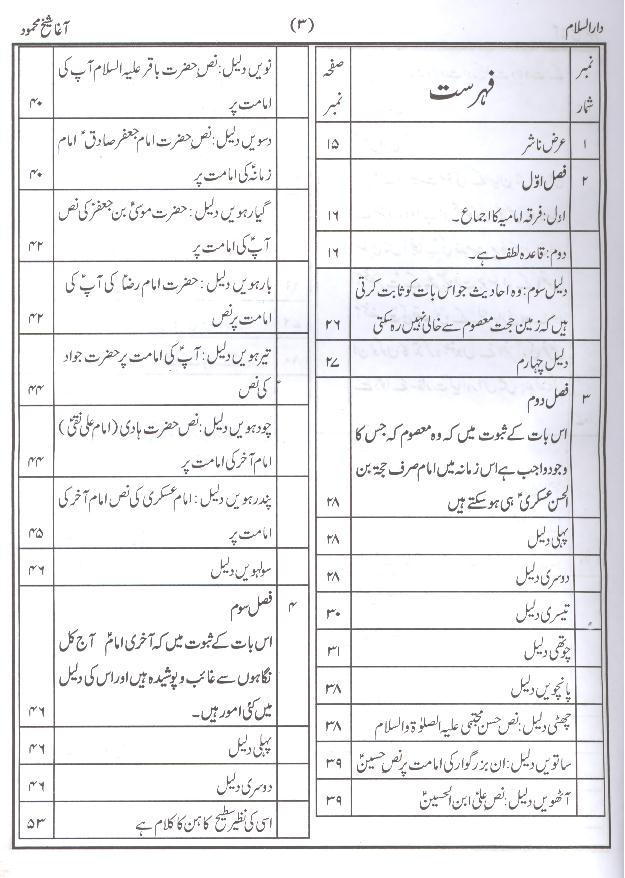 دارالسلام (۳) آغا شیخ محمود
نمبر شمار فہرست صفحہ نمبر
۱ عرض ناشر ۱۵
۲ فصل اوّل
اوّل: فرقہ امامیہ کا اجماع۔ ۱۶
دوم: قاعدہ لطف ہے۔ ۱۶
دلیل سوم: وہ احادیث جو اس بات کو ثابت کرتی
ہیں کہ زمین حجت معصوم سے خالی نہیں رہ سکتی ۲۶
دلیل چہارم ۲۷
۳ فصل دوم
اس بات کے ثبوت میں کہ وہ معصوم کہ جس کا
وجود واجب ہے اس زمانہ میں امام صرف حجۃ بن
الحسن عسکریؑ ہی ہو سکتے ہیں ۲۸
پہلی دلیل ۲۸
دوسری دلیل ۲۸
تیسری دلیل ۳۰
چوتھی دلیل ۳۱
پانچویں دلیل ۳۸
چھٹی دلیل: نص حسن مجتبیٰ علیہ الصلوٰۃ والسلام ۳۸
ساتویں دلیل: ان بزرگوار کی امامت پر نص حسینؑ ۳۹
آٹھویں دلیل: نص علیؑ ابن الحسینؑ ۳۹
نویں دلیل: نص حضرت باقر علیہ السلام آپ کی
امامت پر ۴۰
دسویں دلیل: نص حضرت امام جعفر صادقؑ امام
زمانہؑ کی امامت پر ۴۰
گیارہویں دلیل: حضرت موسیٰؑ بن جعفرؑ کی نص
آپؑ کی امامت پر ۴۲
بارہویں دلیل: حضرت امام رضاؑ کی آپؑ کی
امامت پر نص ۴۲
تیرہویں دلیل: آپؑ کی امامت پر حضرت جوادؑ
کی نص ۴۴
چودہویں دلیل: نص حضرت ہادی (امام علی نقیؑ)
امام آخر کی امامت پر ۴۴
پندرہویں دلیل: امام عسکری کی نص امام آخر کی
امامت پر ۴۵
سولہویں دلیل ۴۶
۴ فصل سوم
اس بات کے ثبوت میں کہ آخری امامؑ آج کل
نگاہوں سے غائب و پوشیدہ ہیں اور اس کی دلیل
میں کئی امور ہیں۔ ۴۶
پہلی دلیل ۴۶
دوسری دلیل ۴۶
اسی کی نظیر سطیح کاہن کا کلام ہے ۵۳